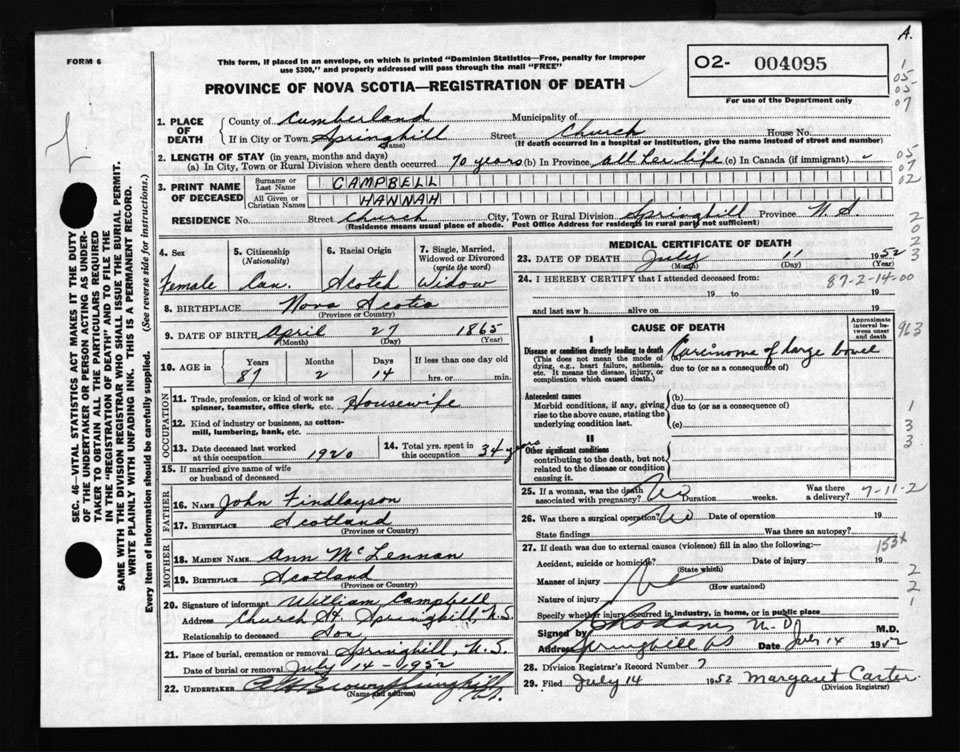 A.
FORM 6
This form, if placed in an envelope, on which is printed "Dominion Statistics—Free, penalty for improper
use $300," and properly addressed will pass through the mail "FREE"
O2- 004095
For use of the Department only
PROVINCE OF NOVA SCOTIA—REGISTRATION OF DEATH
1
05
05
07
05
07
02
2
0
2
2
3
963
1
3
3
2
2
1
SEC. 46— VITAL STATISTICS ACT MAKES IT THE DUTY
OF THE UNDERTAKER OR PERSON ACTING AS UNDER-
TAKER TO OBTAIN ALL THE PARTICULARS REQUIRED
IN THE "REGISTRATION OF DEATH" AND TO FILE THE
SAME WITH THE DIVISION REGISTRAR WHO SHALL ISSUE THE BURIAL PERMIT.
WRITE PLAINLY WITH UNFADING INK. THIS IS A PERMANENT RECORD.
Every item of information should be carefully supplied. (See reverse side for instructions.)
1. PLACE OF DEATH
County of Cumberland Municipality of
If in City or Town Springhill Street Church House No.
(Name) (If death occurred in a hospital or institution, give the name instead of street and number)
2. LENGTH OF STAY (in years, months and days)
(a) In City, Town or Rural Division where death occurred 70 years (b) In Province all her life (c) In Canada (if immigrant) -
3. PRINT NAME OF DECEASED
Surname or Last Name CAMPBELL
All Given or Christian Names HANNAH
RESIDENCE No. Street Church City, Town or Rural Division Springhill Province N.S.
(Residence means usual place of abode. Post Office Address for residents in rural parts not sufficient)
4. Sex
Female
5. Citizenship
(Nationality)
Can.
6. Racial Origin
Scotch
7. Single, Married,
Widowed or Divorced
(write the word)
Widow
8. BIRTHPLACE Nova Scotia
(Province or Country)
9. DATE OF BIRTH April 27 1865
(Month) (Day) (Year)
10. AGE in Years Months Days If less than one day old
87 2 14 hrs. or min.
OCCUPATION
11. Trade, profession, or kind of work as
spinner, teamster, office clerk, etc. Housewife
12. Kind of industry or business, as cotton-
mill, lumbering, bank, etc.
13. Date deceased last worked
at this occupation 1920
14. Total yrs. spent in
this occupation 34 years
15. If married give name of wife
or husband of deceased
FATHER
16. NAME John Findlayson
17. BIRTHPLACE Scotland
(Province or Country)
MOTHER
18. MAIDEN NAME Ann McLennan
19. BIRTHPLACE Scotland
(Province or Country)
20. Signature of informant William Campbell
Address Church St. Springhill, N.S.
Relationship to deceased Son
21. Place of burial, cremation or removal Springhill, N.S.
Date of burial or removal July 14 - 1952
22. UNDERTAKER Brown Springhill
(Name and address)
MEDICAL CERTIFICATE OF DEATH
23. DATE OF DEATH July 11 1952
(Month) (Day) (Year)
24. I HEREBY CERTIFY that I attended deceased from: 87-2-14-00
19 to 19
and last saw h alive on 19
CAUSE OF DEATH
Approximate
interval be-
tween onset
and death
I
Disease or condition directly leading to death
(This does not mean the mode of
dying, e.g., heart failure, asthenia,
etc. It means the disease, injury, or
complication which caused death.)
Carcinoma of large bowel
due to (or as a consequence of)
Antecedent causes
Morbid conditions, if any, giving
rise to the above cause, stating the
underlying condition last.
(b)
due to (or as a consequence of)
(c)
II
Other significant conditions
contributing to the death, but not
related to the disease or condition
causing it.
25. If a woman, was the death
associated with pregnancy? No Duration weeks. Was there
a delivery?
7-11-2
26. Was there a surgical operation? No Date of operation 19
State findings Was there an autopsy?
27. If death was due to external causes (violence) fill in also the following:— 153x
Accident, suicide or homicide? Date of injury 19
(State which)
Manner of injury
(How sustained)
Nature of injury
Specify whether injury occurred in industry, in home, or in public place
Signed by M.D. M.D.
Address Springhill NS Date July 14 1952
28. Division Registrar's Record Number 7
29. Filed July 14 1952 Margaret Carter
(Division Registrar)